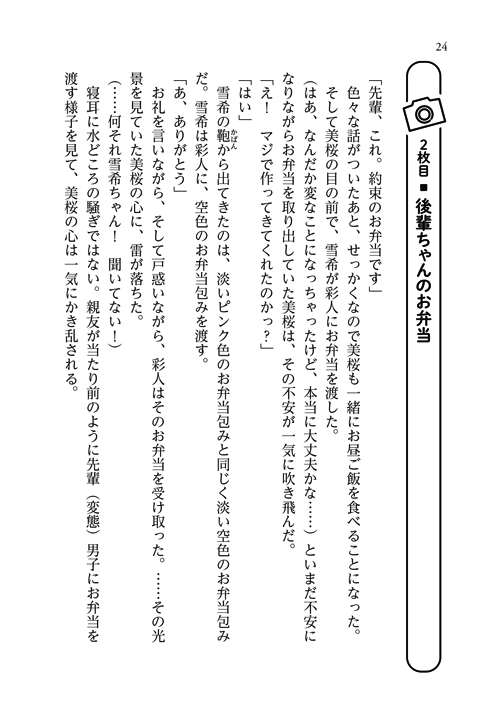 24
2枚目■後輩ちゃんのお弁当
「先輩、これ。約束のお弁当です」
色々な話がついたあと、せっかくなので美桜も一緒にお昼ご飯を食べることになった。
そして美桜の目の前で、雪希が彩人にお弁当を渡した。
(はあ、なんだか変なことになっちゃったけど、本当に大丈夫かな……)といまだ不安に
なりながらお弁当を取り出していた美桜は、その不安が一気に吹き飛んだ。
「え！　マジで作ってきてくれたのかっ？」
「はい」
雪希の鞄かばんから出てきたのは、淡いピンク色のお弁当包みと同じく淡い空色のお弁当包み
だ。雪希は彩人に、空色のお弁当包みを渡す。
「あ、ありがとう」
お礼を言いながら、そして戸惑いながら、彩人はそのお弁当を受け取った。……その光
景を見ていた美桜の心に、雷が落ちた。
(……何それ雪希ちゃん！　聞いてない！)
寝耳に水どころの騒ぎではない。親友が当たり前のように先輩（変態）男子にお弁当を
渡す様子を見て、美桜の心は一気にかき乱される。